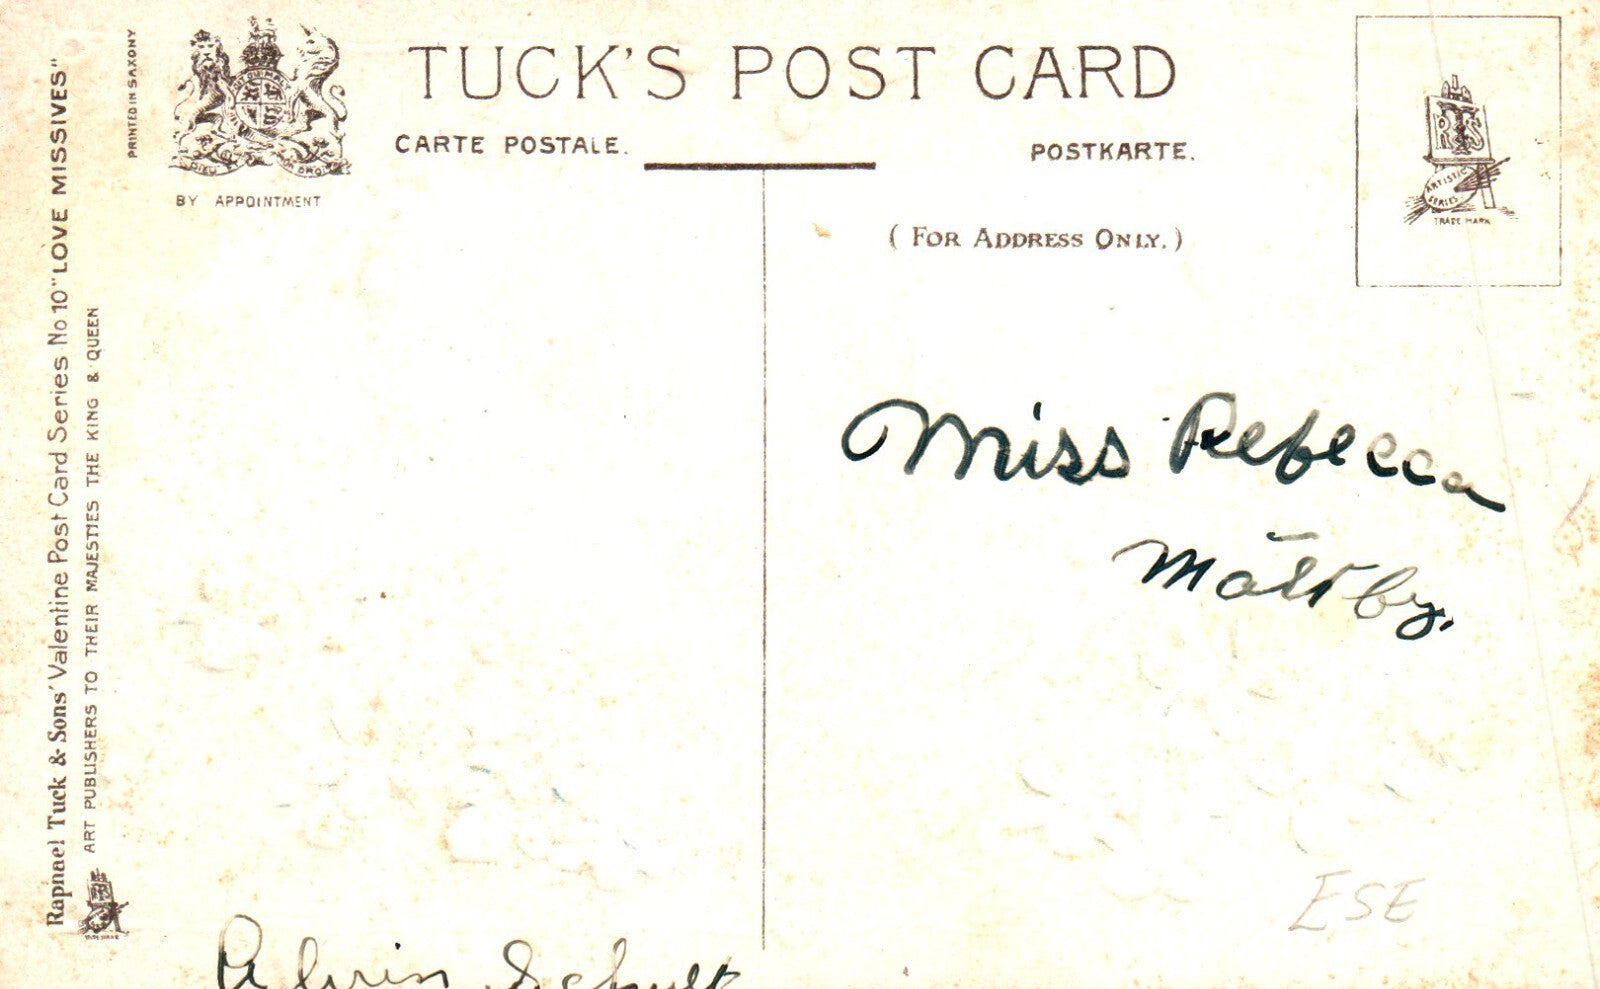 TUCK'S POST CARD
CARTE POSTALE.
POSTKARTE.
(FOR ADDRESS ONLY.)
BY APPOINTMENT
PRINTED IN SAXONY
Raphael Tuck & Sons' Valentine Post Card Series No 10 "LOVE MISSIVES"
ART PUBLISHERS TO THEIR MAJESTIES THE KING & QUEEN
ARTISTIC
SERIES
TRADE MARK
Miss Rebecca
Maltby.
ESE